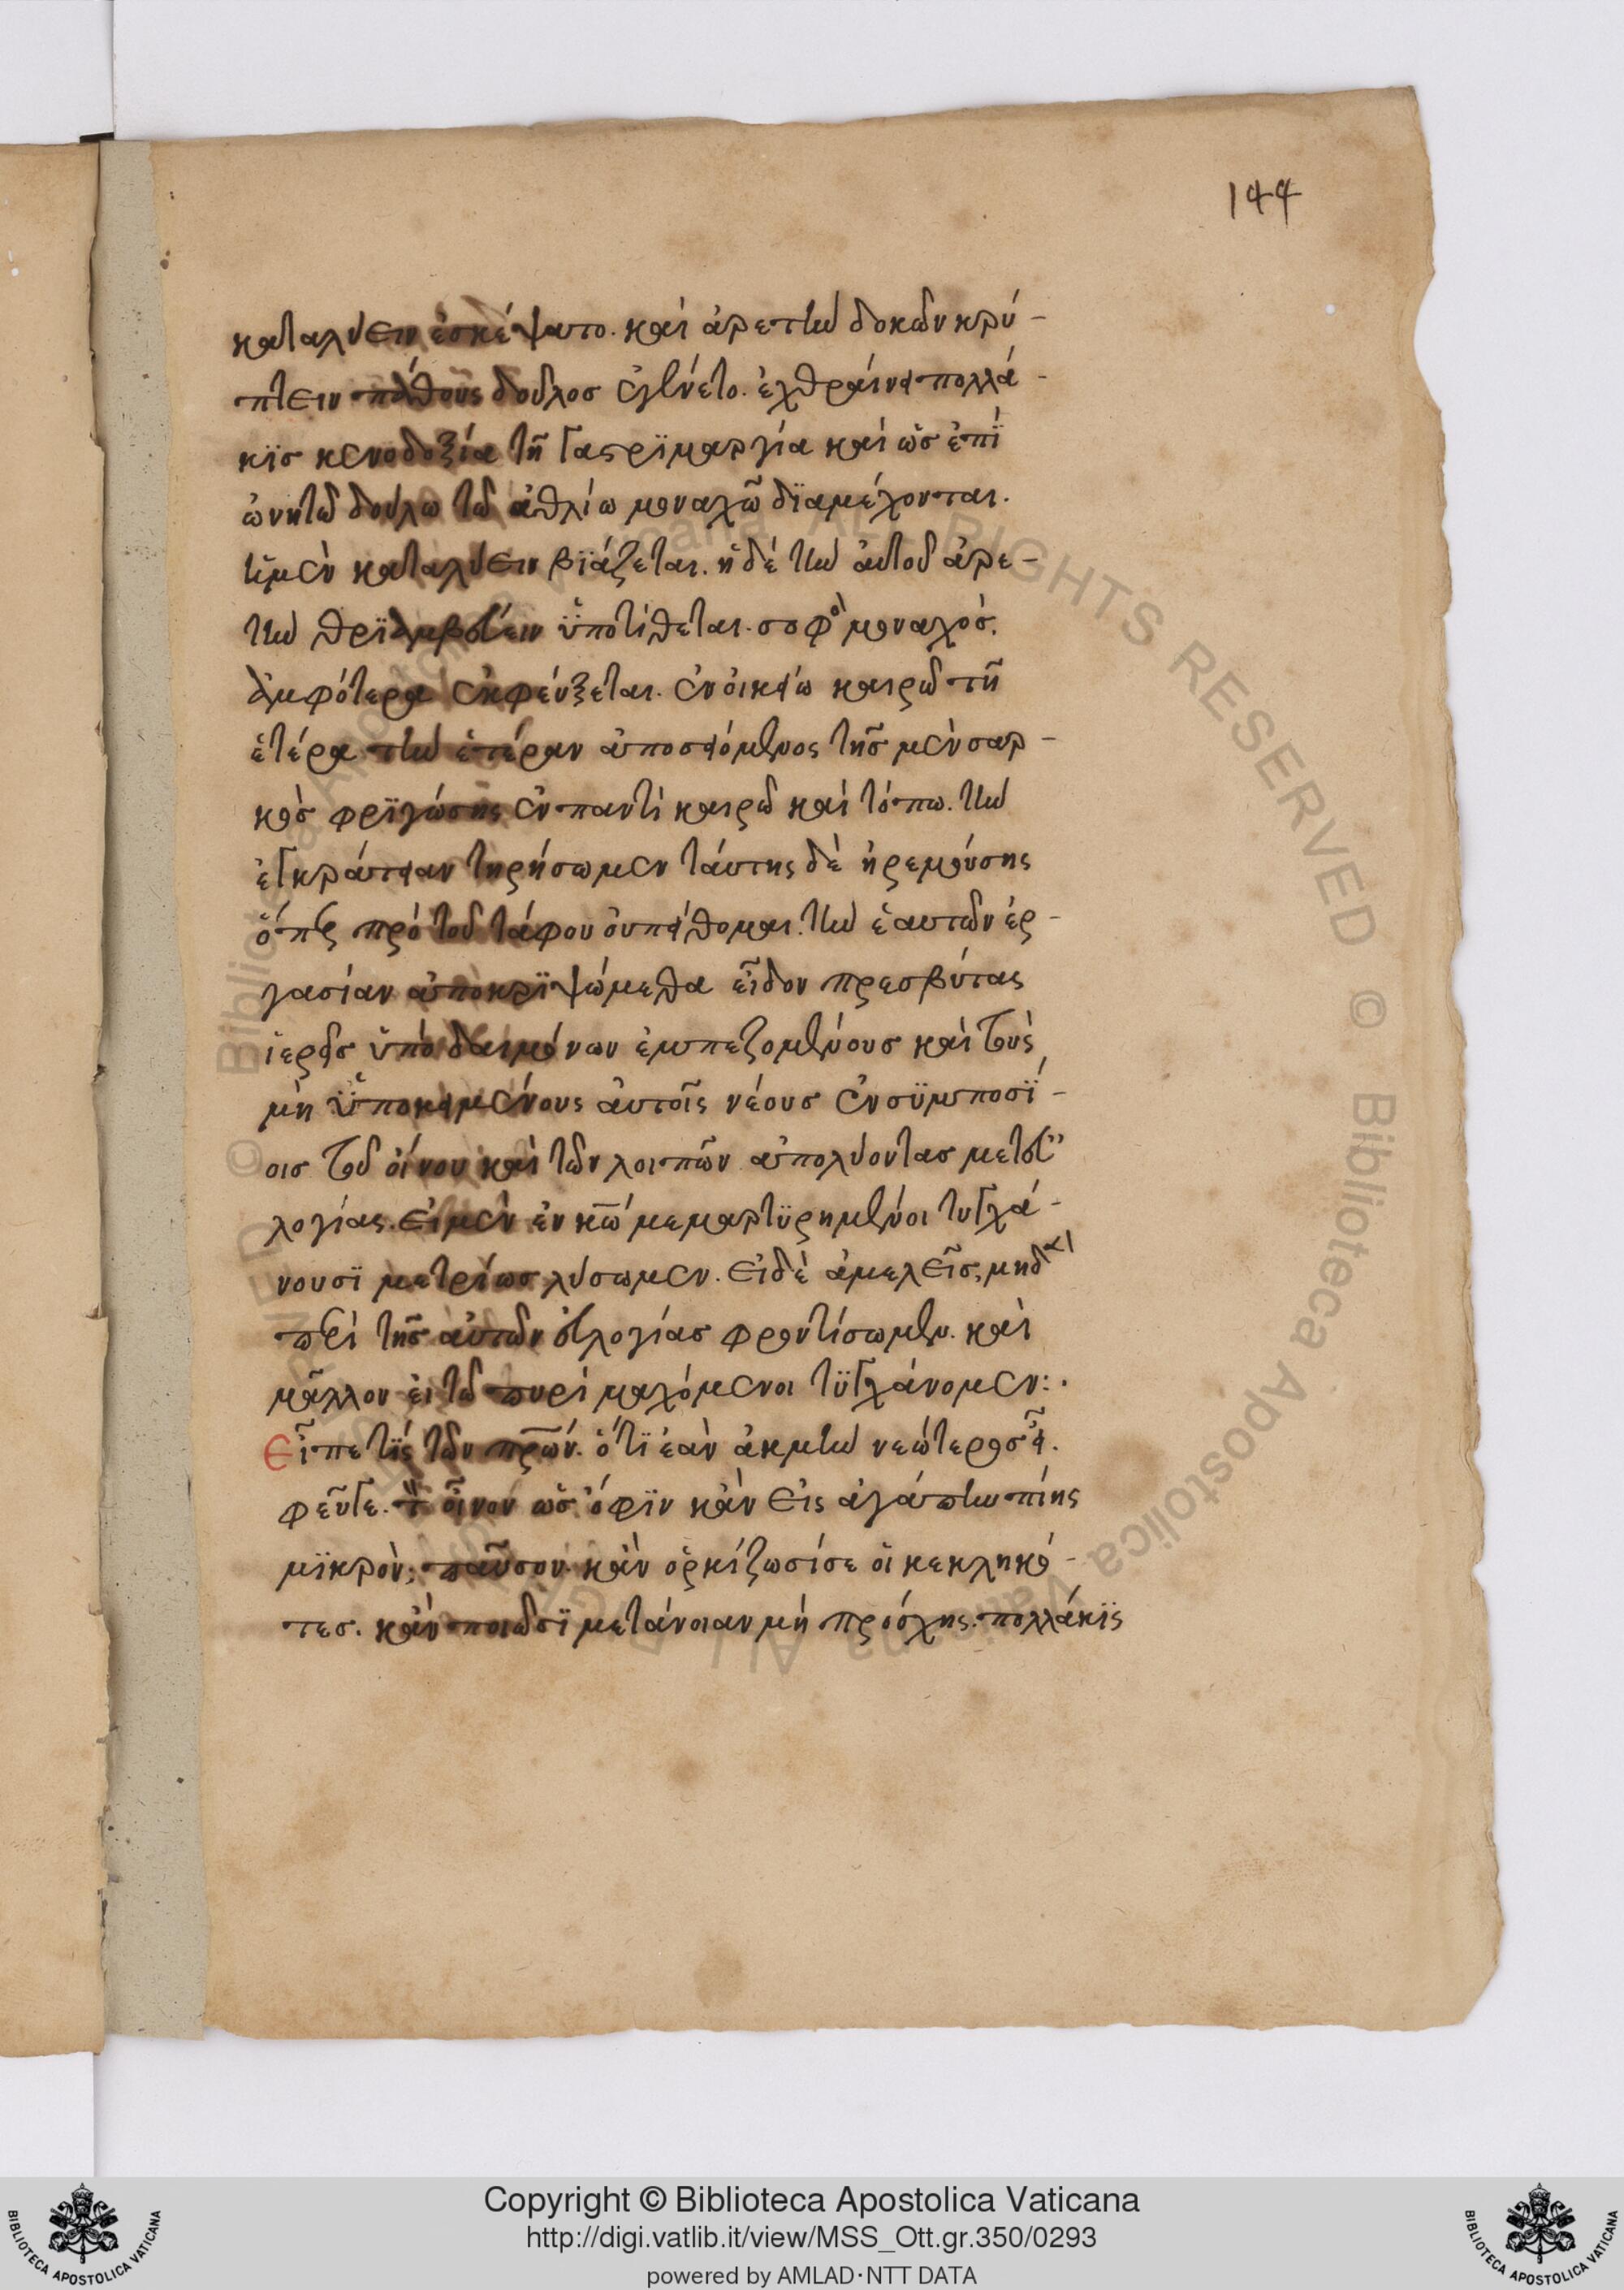 144
καταλύειν ἐσκέψατο. καὶ ἀρετὴν δοκῶν κρύ-
πτειν πάθους δοῦλοσ ἐγένετο. ἐχθραίνει πολλά-
κϊσ κενοδοξία τῆ γαστρϊμαργία καὶ ὡσ ἐπῒ
ὠνητῶ δούλω τῶ ἀθλίω μοναχῶ δϊαμάχονται.
ἡ μὲν καταλύειν βϊάζεται. ἡ δὲ τὴν ἀυτοῦ ἀρε-
τὴν θρϊαμβεύειν ὑποτίθεται. σοφὸ μοναχόσ.
ἀμφότερα ἐκφεύξεται. ἐν οἰκείω καιρῶ τῆ
ἑτέρα τὴν ἑτέραν ἀποσειόμενος τῆσ μὲν σαρ-
κὸσ φρϊγώσης ἐν παντὶ καιρῶ καὶ τόπω. τὴν
ἐγκράτειαν τηρήσωμεν ταύτης δὲ ἠρεμούσης
ὅπερ πρὸ τοῦ τάφου οὐ πείθομαι. τὴν ἑαυτῶν ἐρ-
γασίαν ἀποκρϊψώμεθα εἶδον πρεσβύτας
ἱερεῖσ ὑπὸ δαιμόνων ἐμπεζομένους καὶ τοὺς
μὴ ὑποκειμένους ἀυτοῖς νέουσ ἐν σϋμποσΐ-
οισ τοῦ οἴνου καὶ τῶν λοιπῶν ἀπολύοντασ μετευ
λογίας. εἰ μὲν ἐν κῶ μεμαρτϋρημένοι τυγχά-
νουσϊ μετρίωσ λύσωμεν. εἰ δὲ ἀμελεῖσ, μηδαὶ
περὶ τῆσ ἀυτῶν ἐυλογίασ φροντίσωμεν. καὶ
μᾶλλον εἰ τῶ πυρὶ μαχόμενοι τϋγχάνομεν:.
Εἶπε τϊς τῶν πρῶν. ὅτϊ ἐὰν ἀκμὴν νεώτεροσ εἶ.
φεῦγε. τὸν οἶνον ὡσ ὄφϊν κἂν εἰς ἀγάπην πίης
μϊκρὸν; παῦσον. κἂν ὁρκίζωσίσε οἱ κεκληκό-
τεσ. κἂν ποιῶσϊ μετάνοιαν μὴ πρόσχης. πολλάκϊς
Copyright © Biblioteca Apostolica Vaticana
http://digi.vatlib.it/view/MSS_Ott.gr.350/0293
powered by AMLAD·NTT DATA